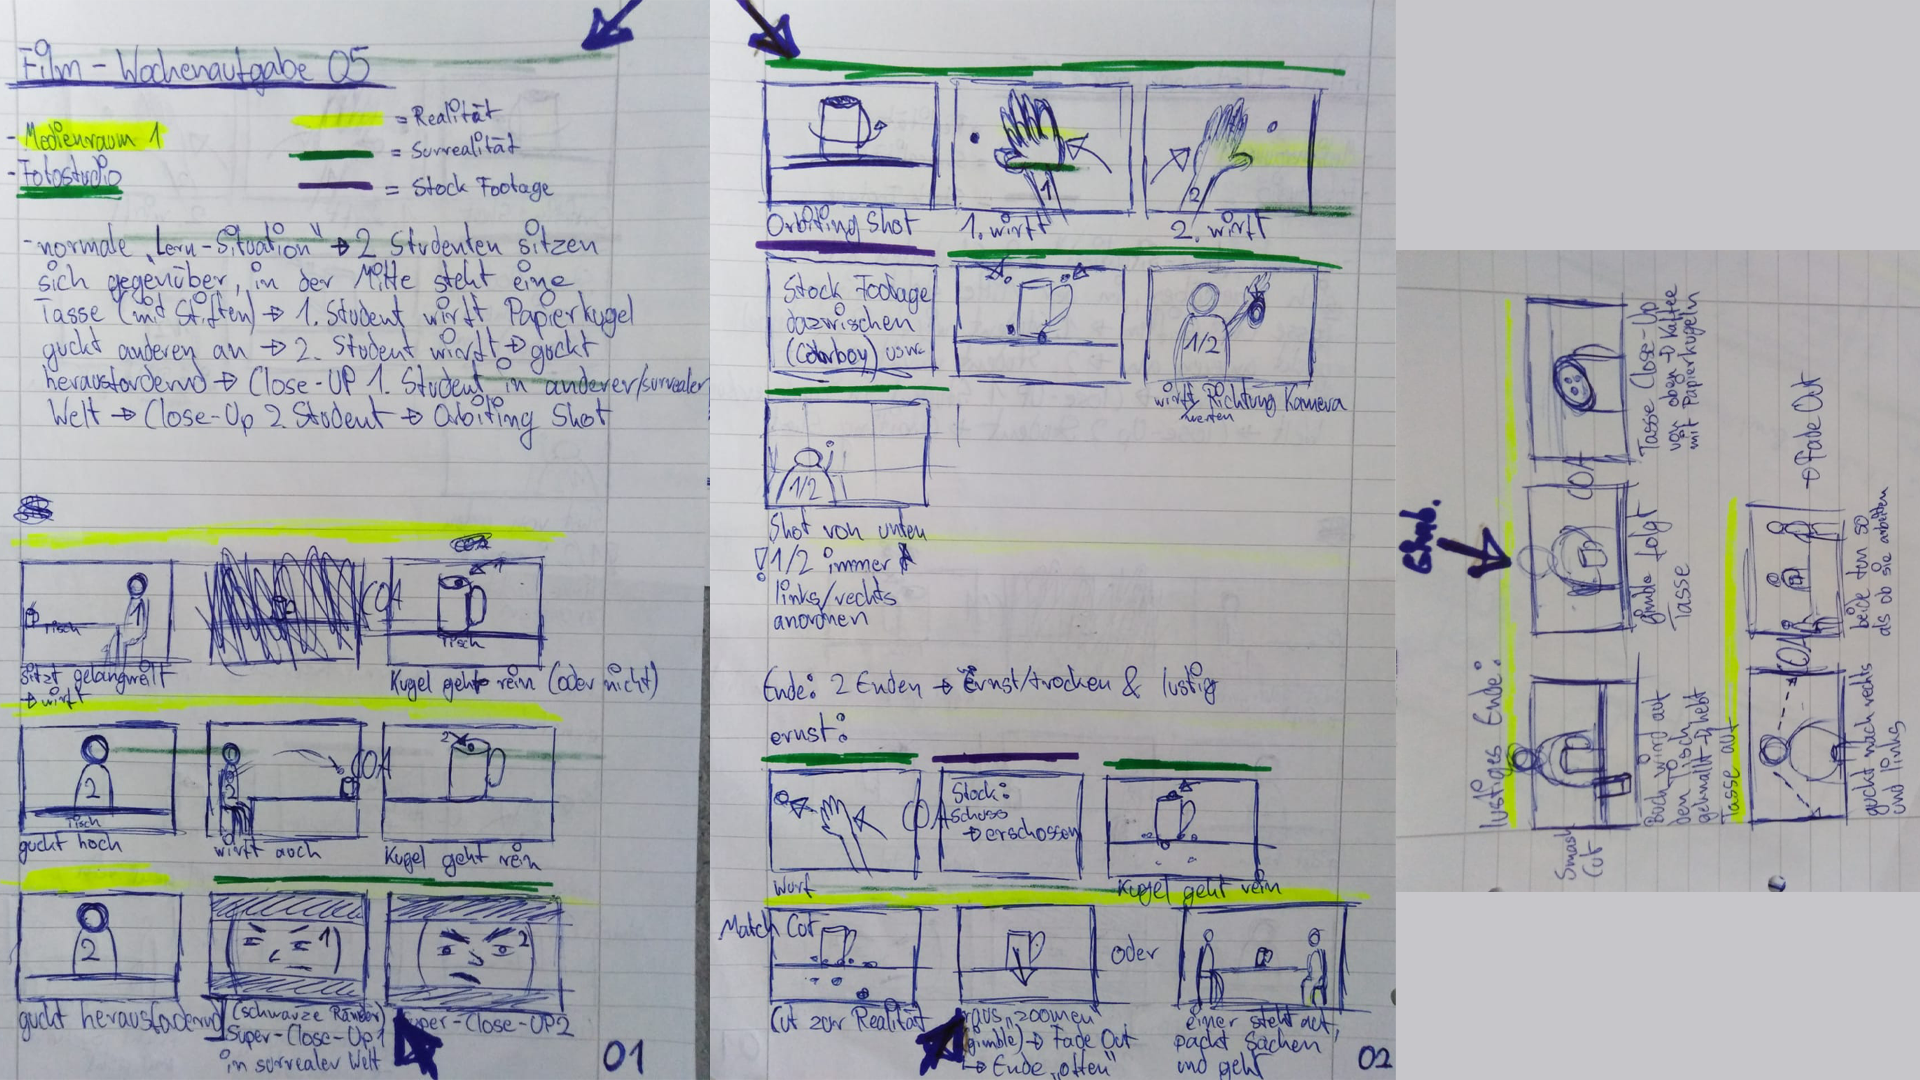 Film - Wochenaufgabe 05
- Medienraum 1
- Fotostudio
= Realität
= Surrealität
= Stock Footage
- normale „Lern-Situation" → 2 Studenten sitzen
sich gegenüber, in der Mitte steht eine
Tasse (mit Stiften) → 1. Student wirft Papierkugel
guckt anderen an → 2. Student wirft → guckt
herausfordernd → Close-UP 1. Student in anderer/surrealer
Welt → Close-Up 2. Student → Orbiting Shot
1
Tisch
sitzt gelangweilt
→ wirft
COA
1
Tisch
Kugel geht rein (oder nicht)
2
Tisch
guckt hoch
2
wirft auch
COA
2
Kugel geht rein
2
guckt herausfordernd
1
(schwarze Ränder)
Super-Close-Up 1
in surrealer Welt
2
Super-Close-UP 2
01
Orbiting Shot
1
1. wirft
2
2. wirft
Stock Footage
dazwischen
(Cowboy) usw.
1/2
wirft Richtung Kamera
1/2
Shot von unten
! 1/2 immer
links/rechts
anordnen
Ende: 2 Enden → Ernst/trocken & lustig
ernst:
Wurf
COA
Stock:
Schuss
→ erschossen
Kugel geht rein
Match Cut
Cut zur Realität
raus „zoomen"
(gimble) → Fade Out
→ Ende „offen"
oder
einer steht auf,
packt Sachen
und geht
02
Gimb.
lustiges Ende:
Smash
Cut
Buch wird auf
den Tisch
geknallt → hebt
Tasse auf
gimble folgt
Tasse
COA
Tasse Close-Up
von oben → Kaffee
mit Papierkugeln
guckt nach rechts
und links
COA
beide tun so
als ob sie arbeiten
→ Fade Out